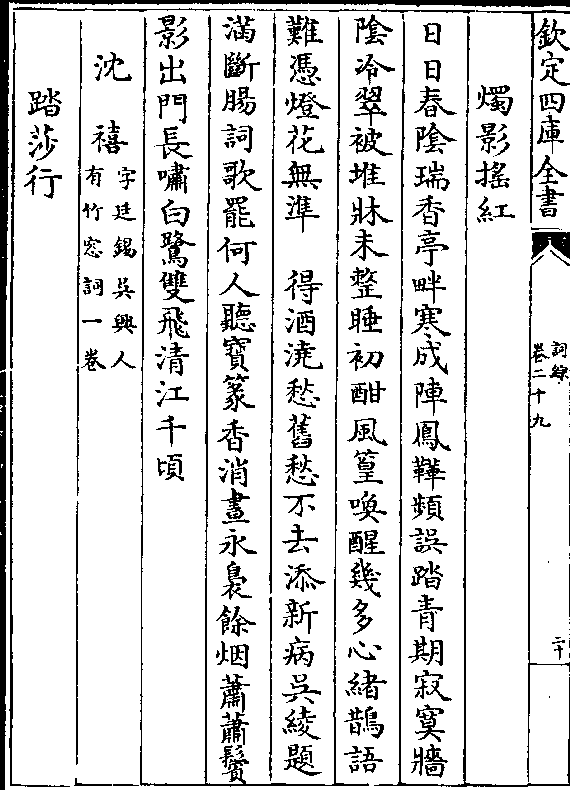 欽定四庫全書
詞綜
卷二十九
二十
燭影揺紅
日日春陰瑞香亭畔寒成陣鳳鞾頻誤踏青期寂寞牆
陰冷翠被堆牀未整睡初酣風篁喚醒幾多心緒鵲語
難憑燈花無準　得酒澆愁舊愁不去添新病吳綾題
滿斷腸詞歌罷何人聽寳篆香消晝永裊餘烟蕭蕭鬢
影出門長嘯白鷺雙飛清江千頃
沈禧
字廷錫吳興人
有竹窓詞一卷
踏莎行